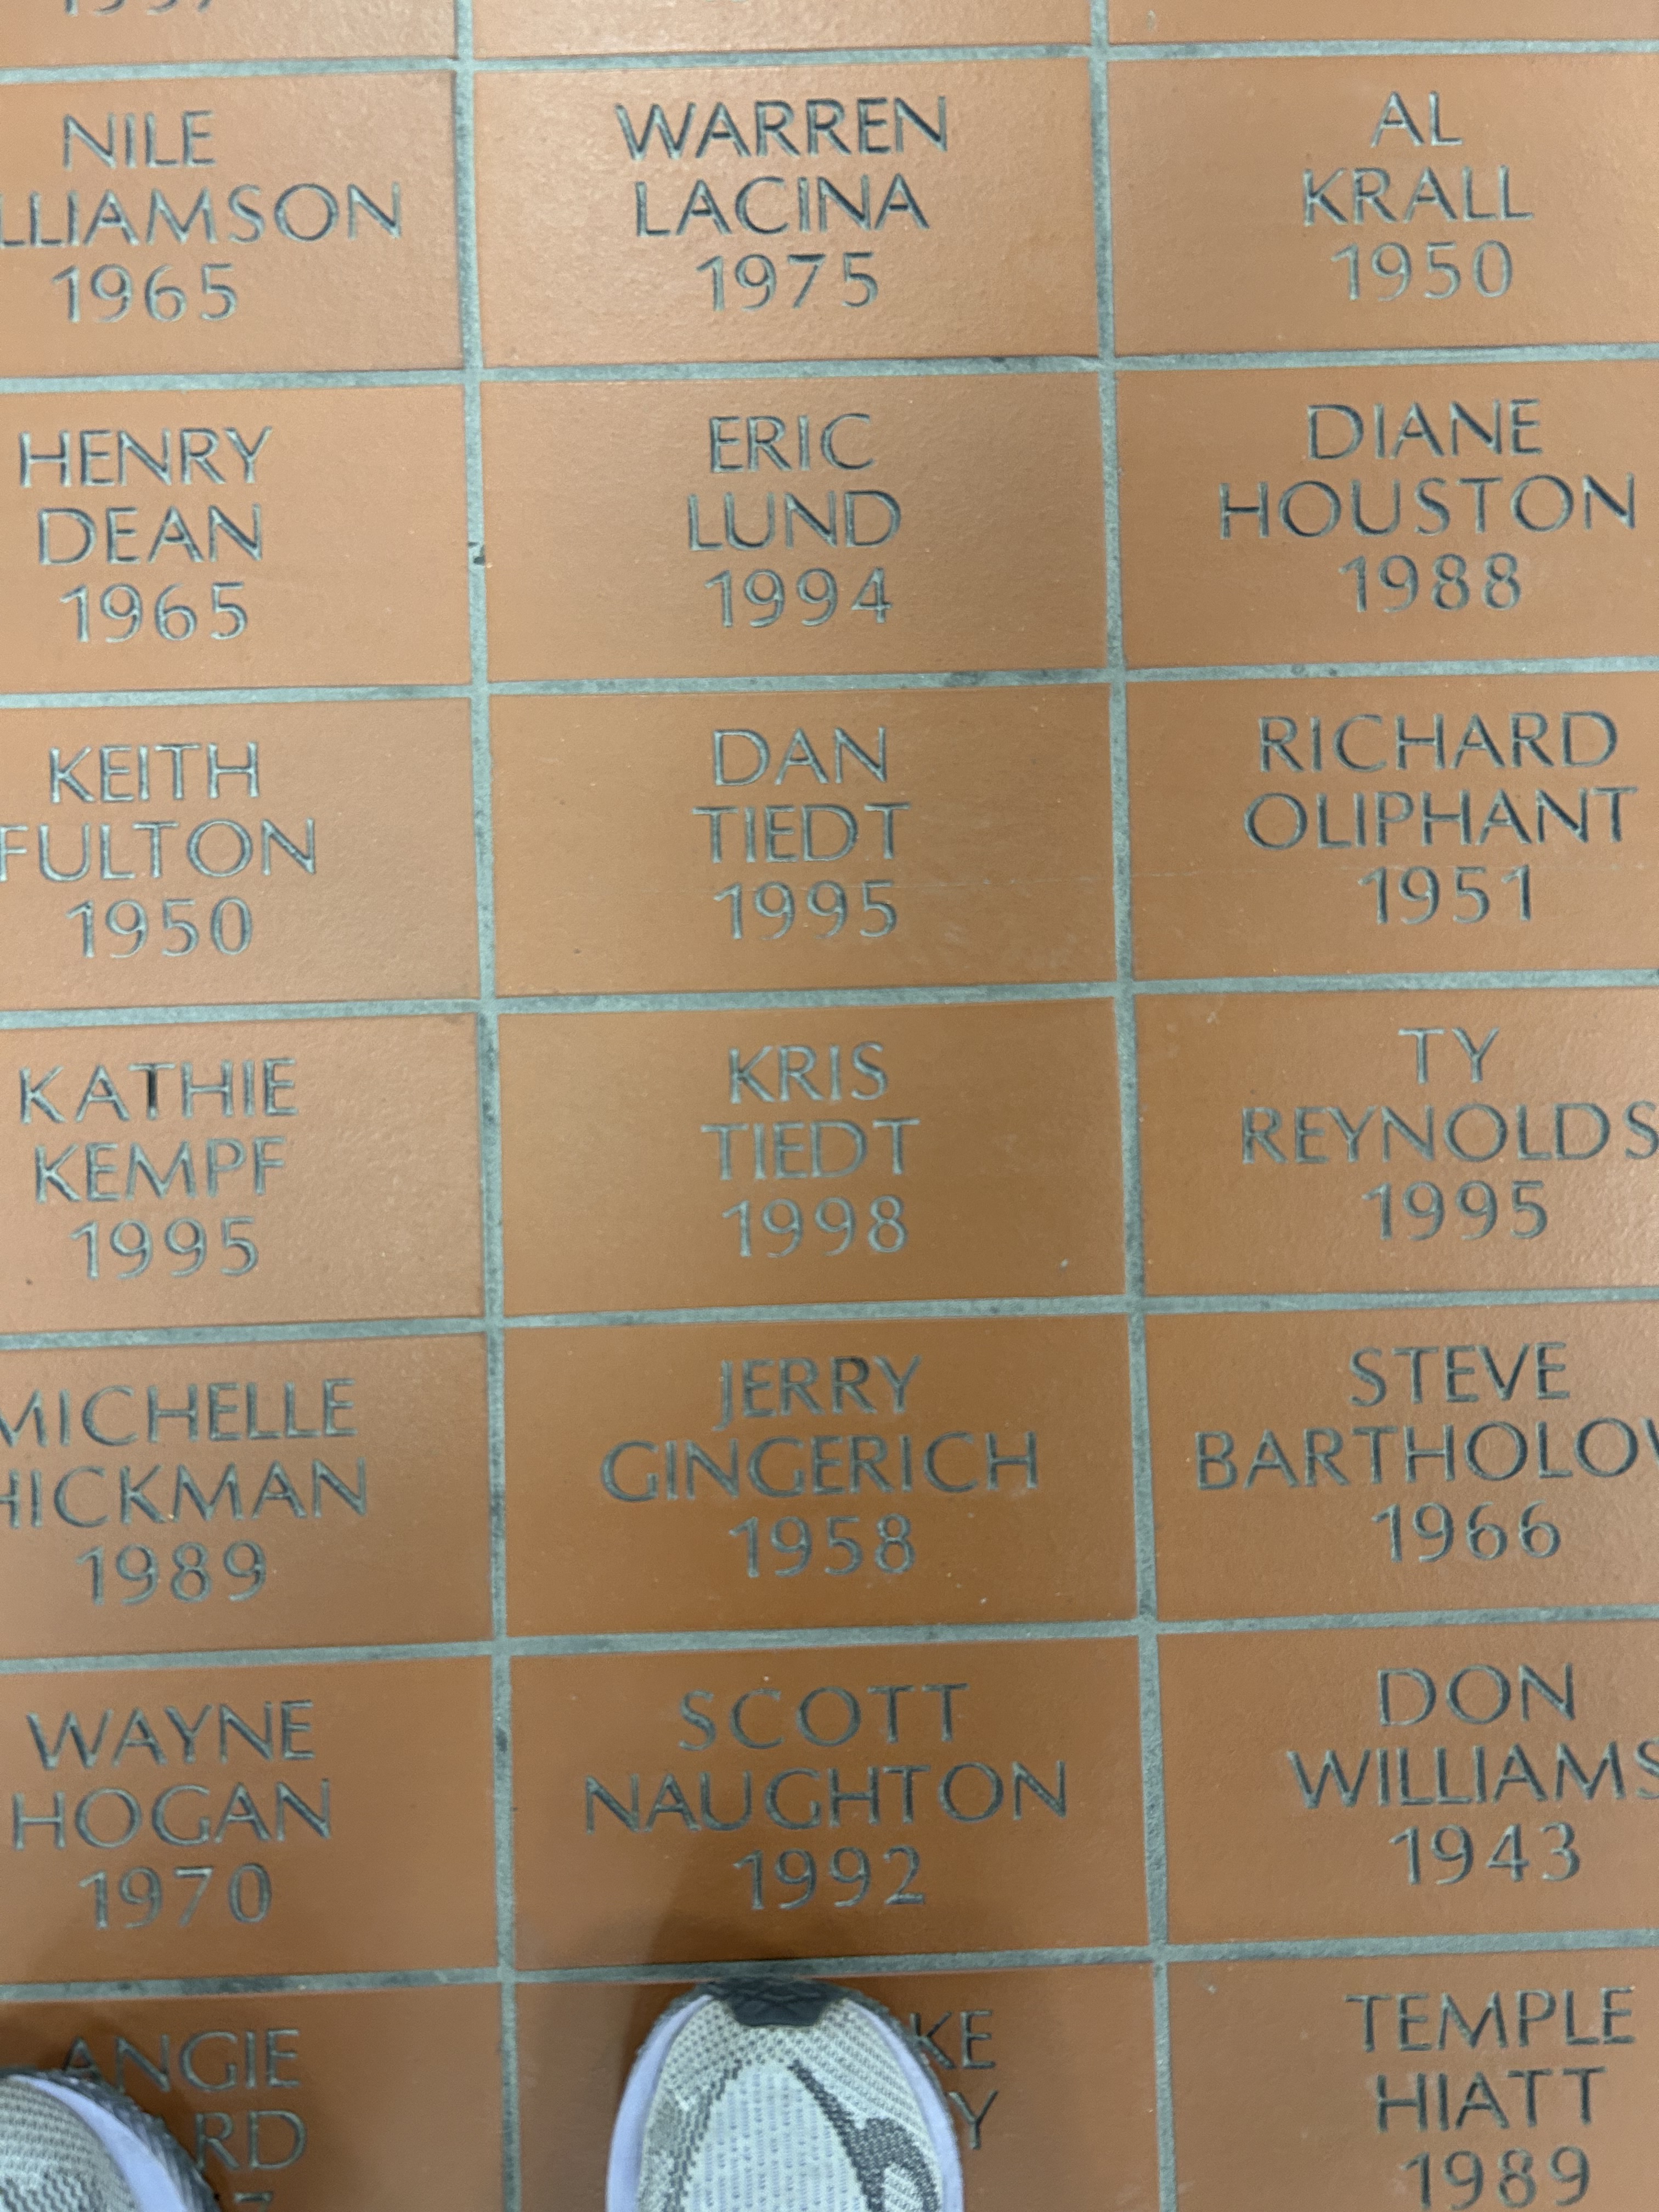 NILE
LLIAMSON
1965
WARREN
LACINA
1975
AL
KRALL
1950
HENRY
DEAN
1965
ERIC
LUND
1994
DIANE
HOUSTON
1988
KEITH
FULTON
1950
DAN
TIEDT
1995
RICHARD
OLIPHANT
1951
KATHIE
KEMPF
1995
KRIS
TIEDT
1998
TY
REYNOLDS
1995
MICHELLE
HICKMAN
1989
JERRY
GINGERICH
1958
STEVE
BARTHOLO
1966
WAYNE
HOGAN
1970
SCOTT
NAUGHTON
1992
DON
WILLIAMS
1943
ANGIE
RD
KE
Y
TEMPLE
HIATT
1989